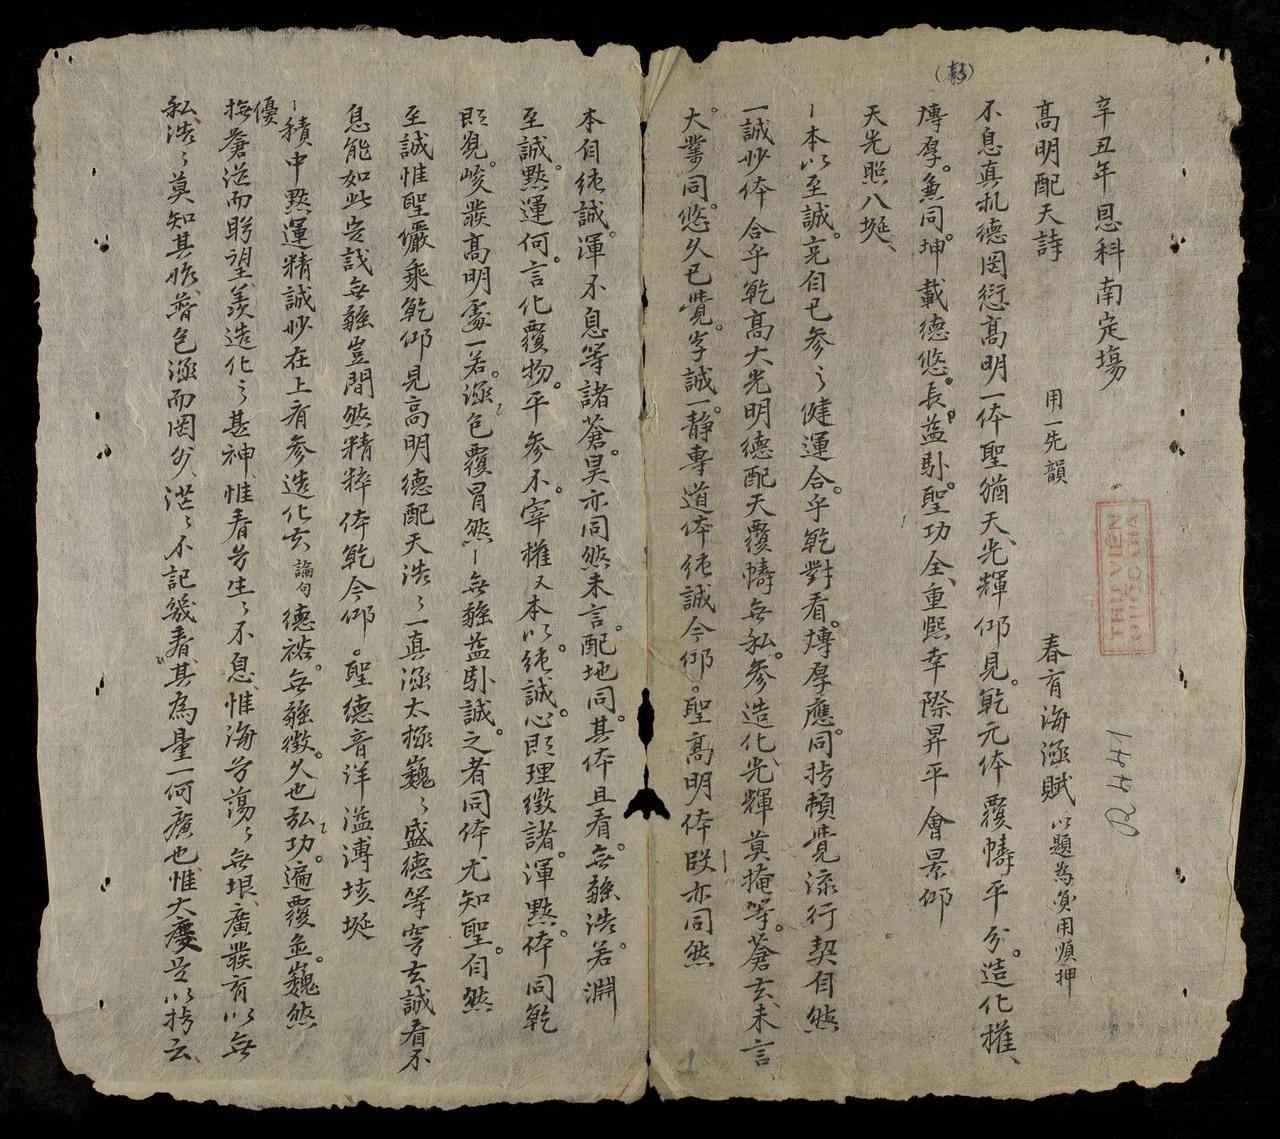 辛丑年恩科南定塲
高明配天詩 用一先韻 春育海涵賦 以題為負用順押
不息真机德罔愆高明一体聖猶天光輝仰見乾元体覆幬平分造化權
慱厚兼同坤載德悠長益卧聖功全重熙幸際昇平會景仰
天光照八埏
本以至誠克自已参之健運合乎乾對看慱厚應同拷頼覺流行契自然
一誠妙体合乎乾高大光明德配天覆幬無私参造化光輝莫掩等蒼玄未言
大業同悠久已覺字誠一静專道体純誠今仰聖高明体段亦同然
本自純誠渾不息等諸蒼昊亦同然未言配地同其体且看無雖浩若淵
至誠黙運何言化覆物平参不宰權又本以純誠心即理徵諸渾黙体同乾
即覓峻發高明處一若涵包覆冒然無雖益卧誠之者同体尤知聖自然
至誠惟聖儼乘乾仰見高明德配天浩〻一真涵太極巍〻盛德等穹玄誠看不
息能如此豈訝無雖豈間然精粹体乾今仰聖德音洋溢溥垓埏
積中黙運精誠妙在上看参造化玄論句德裕無雖徵久也弘功遍覆並巍然
優
撫蒼涖而眇望羡造化之甚神惟春兮生〻不息惟海兮蕩〻無垠廣發育以無
私浩〻莫知其際普包涵而罔外茫〻不記幾春其為量一何廣也惟大慶是以拷云
(彭)
THƯ VIỆN
QUỐC GIA
R.441
1